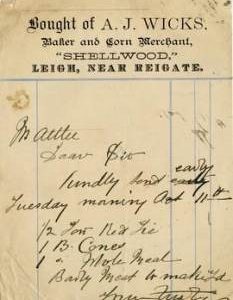 Bought of A. J. WICKS,
Baker and Corn Merchant,
"SHELLWOOD,"
LEIGH, NEAR REIGATE.
Dear Sir
kindly send early
Tuesday morning Oct 11th
1/2 Ton Red
1 B. Cones
1 " Whole Meal
Barly Meal to